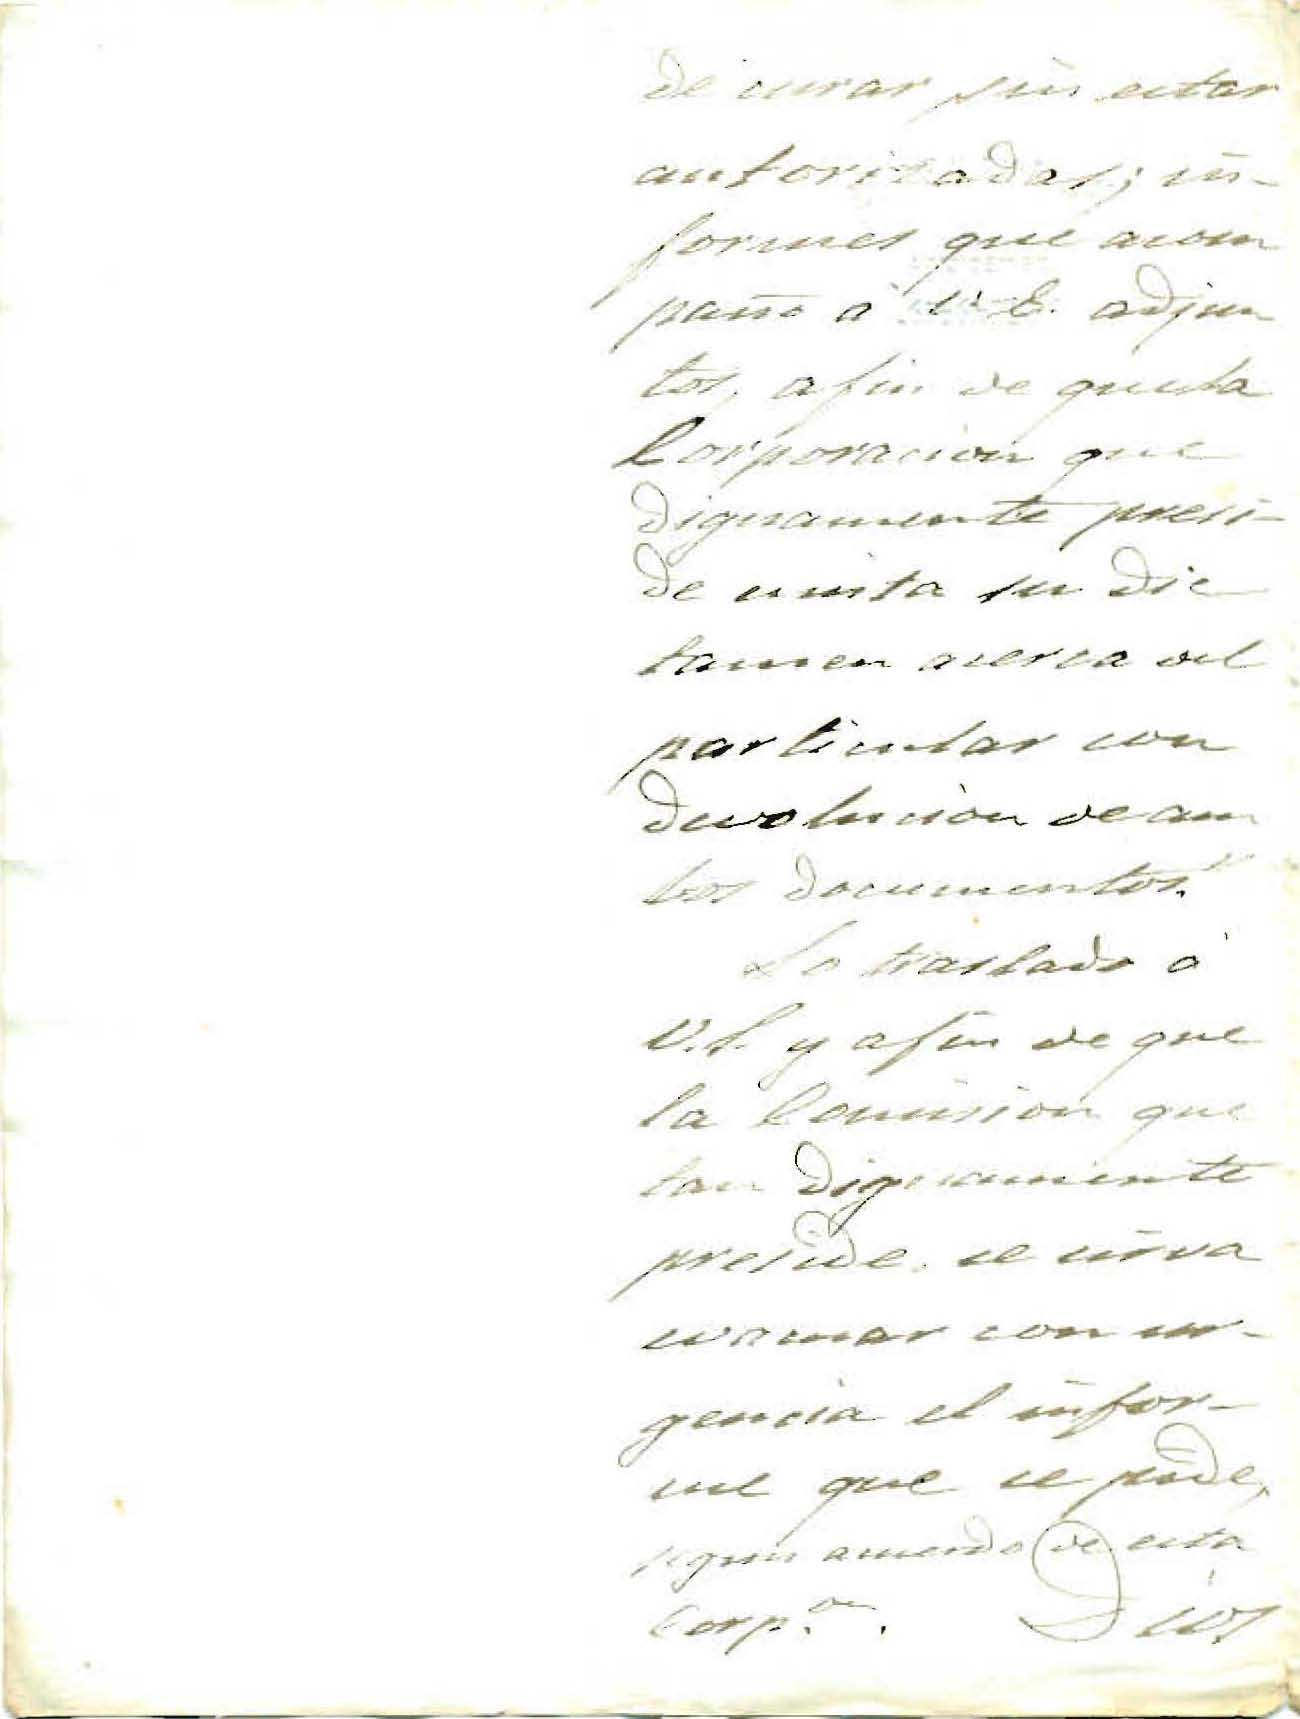 de curar sin estar
autorizadas; in-
formes que acom
paño á V. E. adjun
tos, afin de que la
Corporacion que
dignamente presi-
de emita su dic
tamen acerca del
particular con
devolución de am
bos documentos."
Lo traslado á
V.S. y afin de que
la Comision que
tan dignamente
preside, se sirva
evacuar con ur-
gencia el infor-
me que se pide,
segun acuerdo de esta
Corp.on. Dios